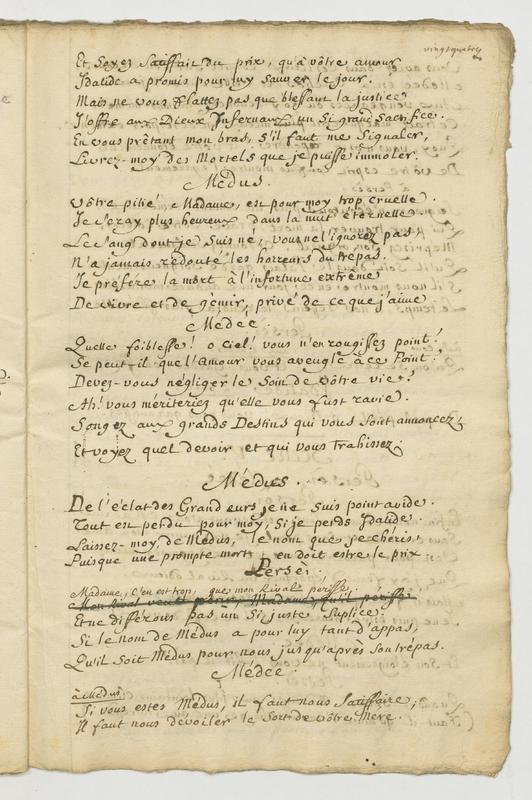 vingtquatre
Et, Soyez Satisfait du prix, qu'à vôtre amour
Idalide a promis pour luy Sauver le jour.
Mais ne vous flattez pas que blessant la justice
J'offre aux Dieux Infernaux un Si grand Sacrifice.
En vous prêtant mon bras, S'il faut me Signaler,
Livrez-moy des Mortels que je puisse immoler.
Medus.
Vôtre pitié Madame, est pour moy trop cruelle.
Je Seray plus heureux dans la nuit éternelle
Le Sang dont je Suis né, vous ne l'ignorez pas
N'a jamais redouté les horreurs du trépas.
Je préfere la mort à l'infortune extrême
De vivre et de gémir, privé de ce que j'aime
Médée.
Quelle foiblesse! o Ciel! vous n'en rougissez point!
Se peut-il que l'Amour vous aveugle à ce Point?
Devez-vous négliger le Soin de vôtre vie?
Ah! vous mériteriez qu'elle vous fust ravie.
Songez aux grands Destins qui vous Sont annoncez;
Et voyez quel devoir et qui vous Trahissez.
Médus.
De l'éclat des Grandeurs je ne Suis point avide.
Tout est perdu pour moy, Si je perds Idalide.
Laissez-moy, de Médus, le nom que je chéris,
Puisque une prompte mort en doit estre le prix.
Persès.
Madame, c'en est trop, que mon Rival périsse
Mon Rival veut périr, Madame, qu'il périsse
Et ne différons pas un Si juste Suplice.
Si le nom de Médus a pour luy tant d'appas,
Qu'il Soit Médus pour nous jusqu'après Son trépas.
Médée.
à Médus
Si vous estes Medus, il faut nous Satisfaire;
Il faut nous dévoiler le Sort de vôtre Mere.